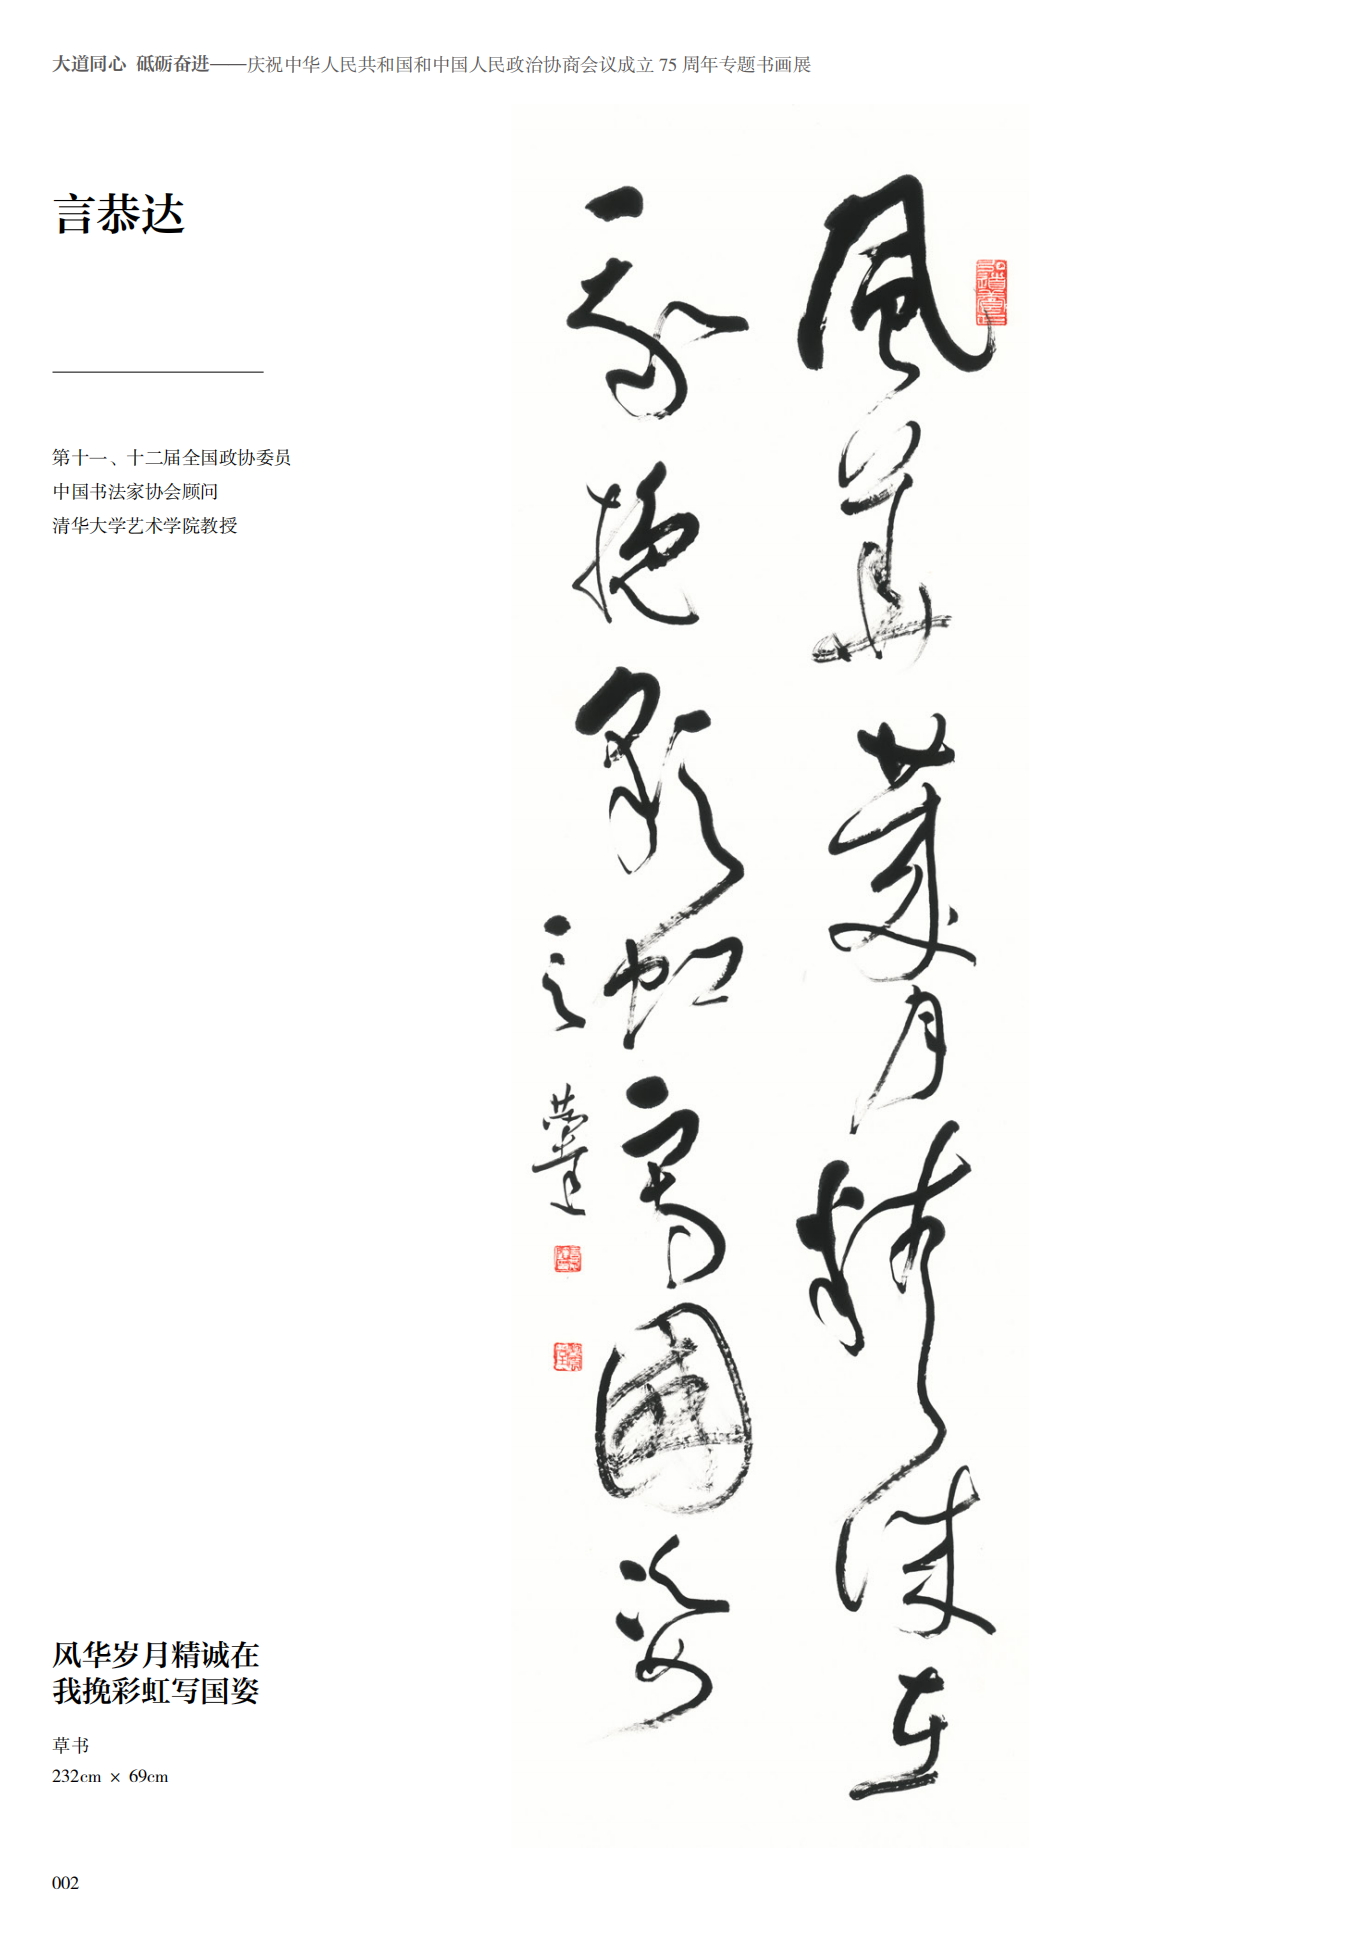 大道同心 砥砺奋进——庆祝中华人民共和国和中国人民政治协商会议成立 75 周年专题书画展
言恭达
第十一、十二届全国政协委员
中国书法家协会顾问
清华大学艺术学院教授
風華歲月精诚在
我挽彩虹写国姿
言恭达
风华岁月精诚在
我挽彩虹写国姿
草书
232cm × 69cm
002